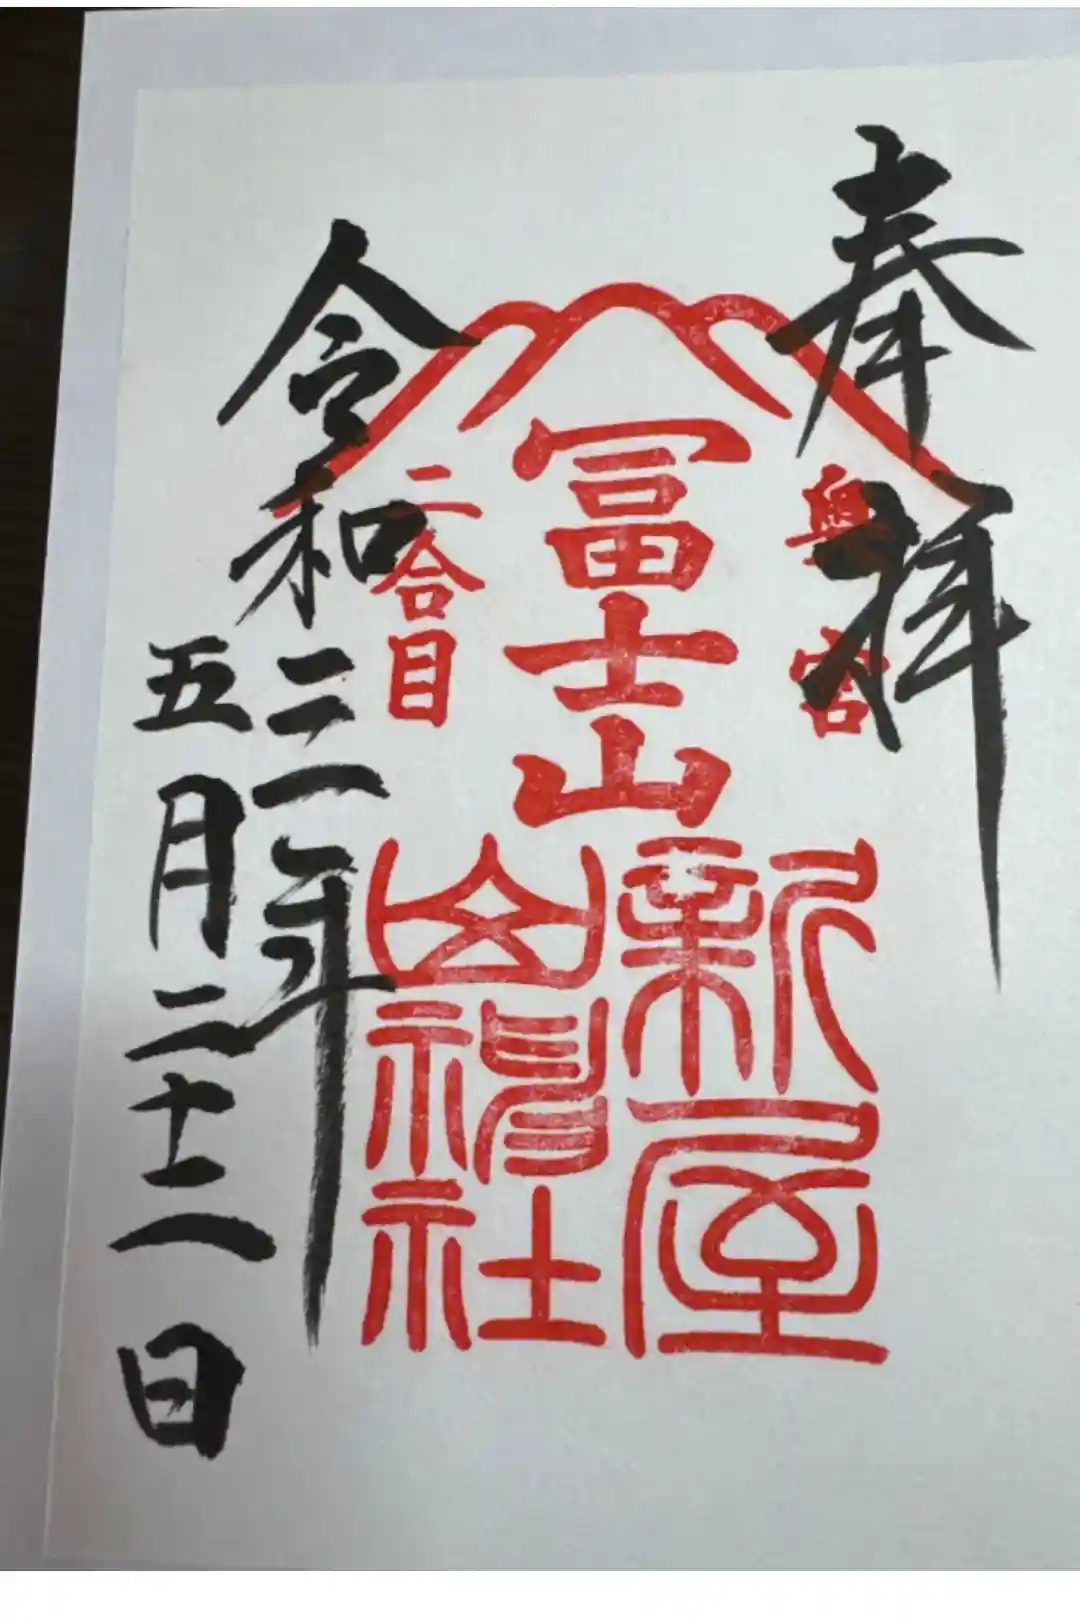 奉拝
奥宮
冨士山
二合目
新屋
山神社
令和三年
五月二十二日